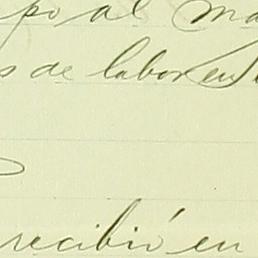 po al ma
s de labor en
recibió en